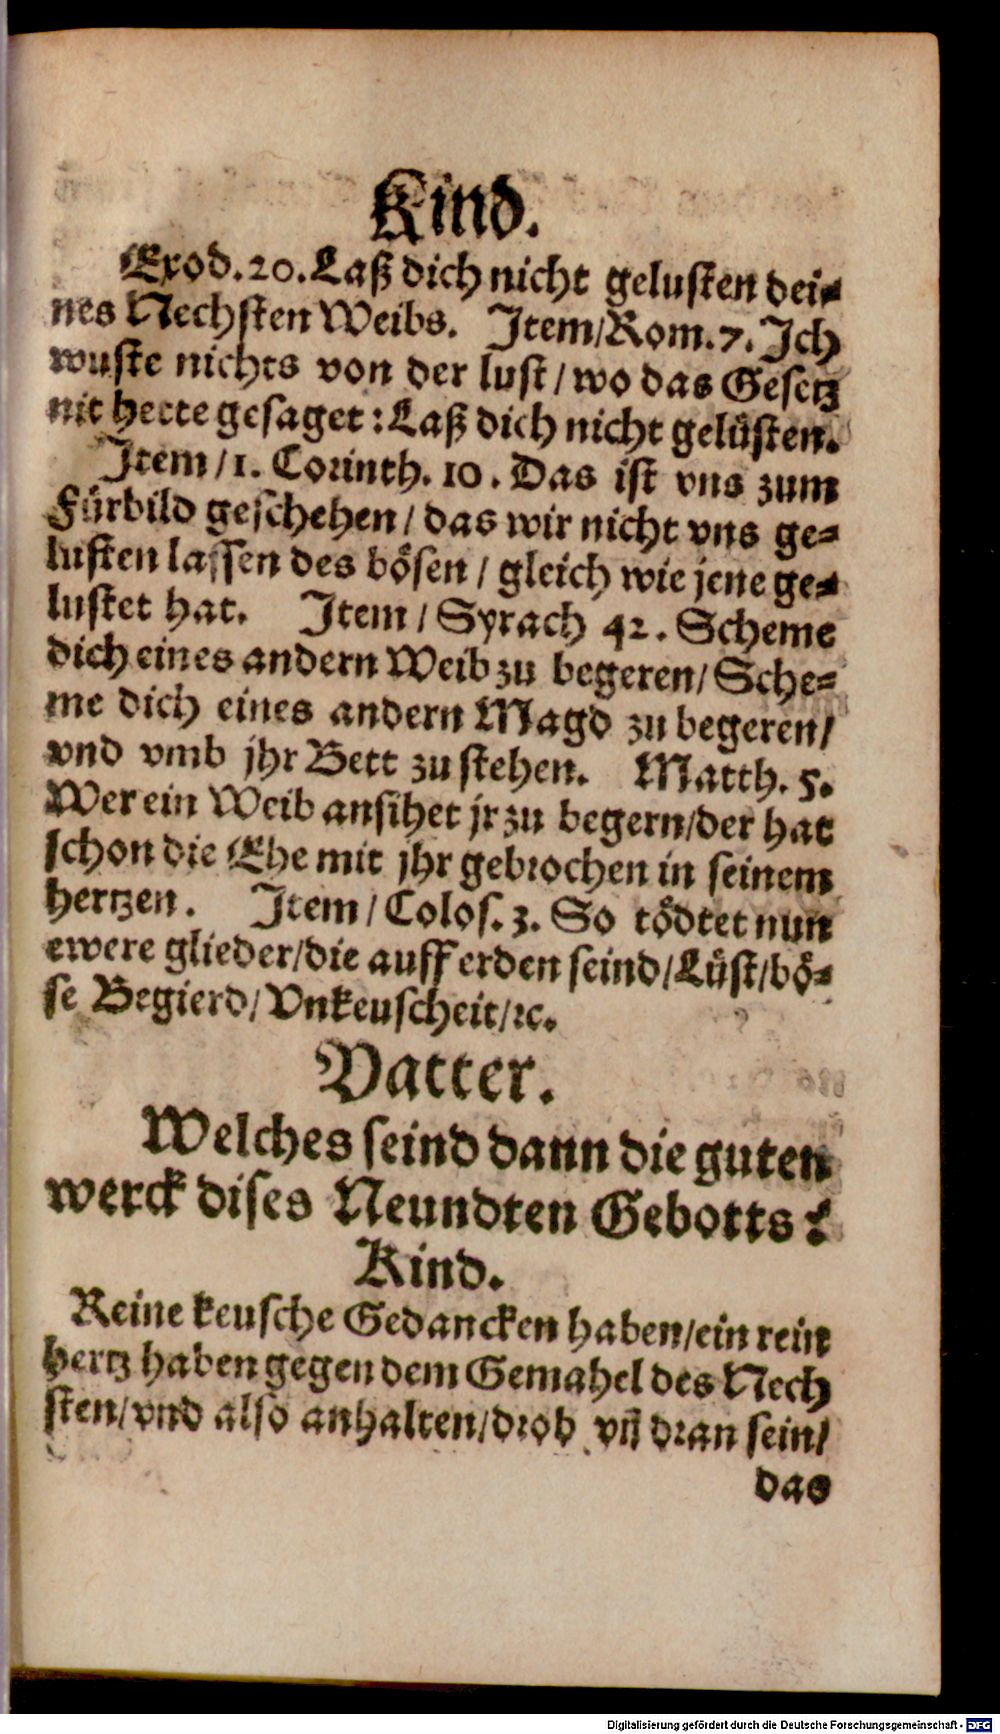 Kind.
Exod. 20. Laß dich nicht gelusten dei-
nes Nechsten Weibs. Item/Rom. 7. Ich
wuste nichts von der lust / wo das Gesetz
nit hette gesaget : Laß dich nicht gelüsten.
Item / 1. Corinth. 10. Das ist vns zum
Fürbild geschehen / das wir nicht vns ge-
lusten lassen des bösen / gleich wie jene ge-
lustet hat. Item / Syrach 42. Scheme
dich eines andern Weib zu begeren / Sche-
me dich eines andern Magd zu begeren /
vnd vmb jhr Bett zu stehen. Matth. 5.
Wer ein Weib ansihet jr zu begern/der hat
schon die Ehe mit jhr gebrochen in seinem
hertzen. Item / Colos. 3. So tödtet nun
ewere glieder/die auff erden seind/Lüst/bö-
se Begierd/ Vnkeuscheit/ꝛc.
Vatter.
Welches seind dann die guten
werck dises Neundten Gebotts?
Kind.
Reine keusche Gedancken haben/ein rein
hertz haben gegen dem Gemahel des Nech
sten/vnd also anhalten/drob vñ dran sein/
das
Digitalisierung gefördert durch die Deutsche Forschungsgemeinschaft - DFG